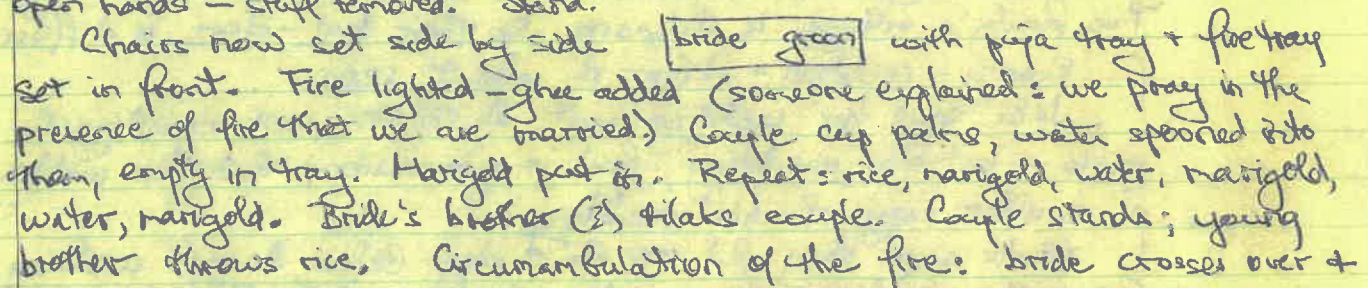 open hands – stuff removed. Stand.
Chairs now set side by side bride groom with puja tray + fire tray
set in front. Fire lighted – ghee added (someone explained: we pray in the
presence of fire that we are married) Couple cup palms, water spooned into
them, empty in tray. Marigold put in. Repeat: rice, marigold, water, marigold,
water, marigold. Bride's brother (?) tilaks couple. Couple stands; young
brother throws rice. Circumambulation of the fire: bride crosses over +